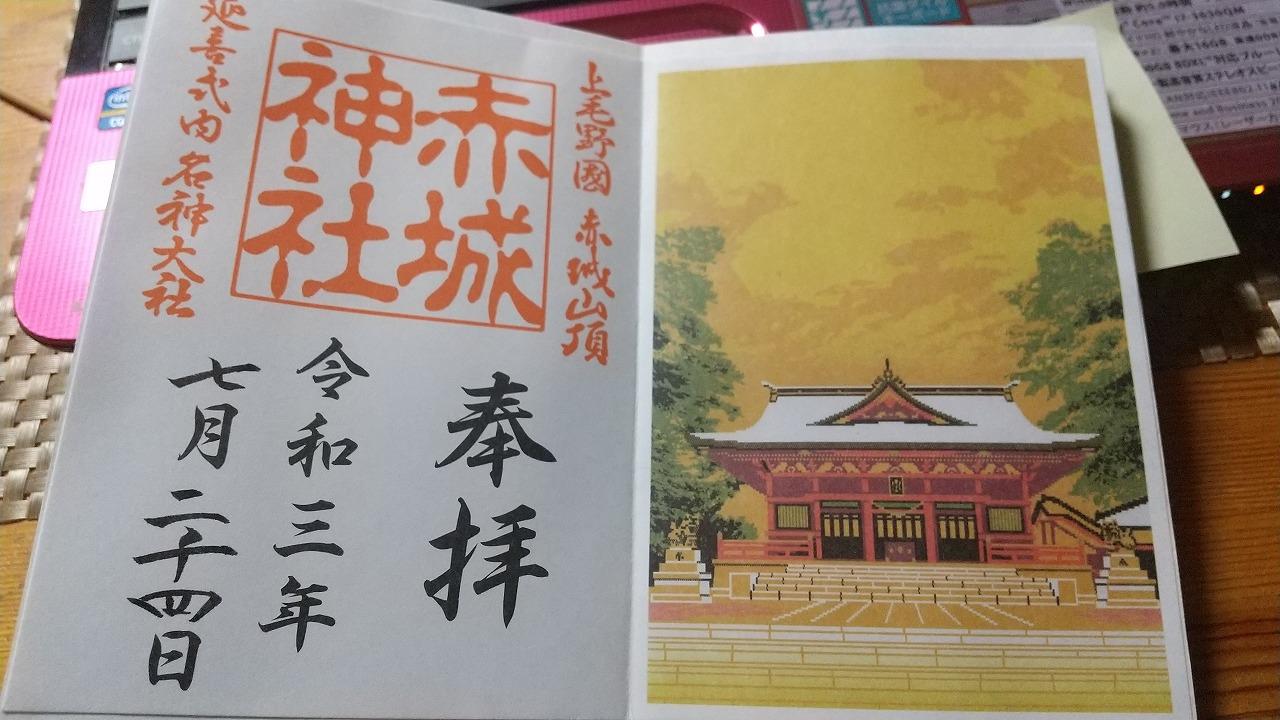 上毛野國 赤城山頂
赤城
神社
延喜式内 名神大社
奉拝
令和三年
七月二十四日
i7-3630QM
最大16GB